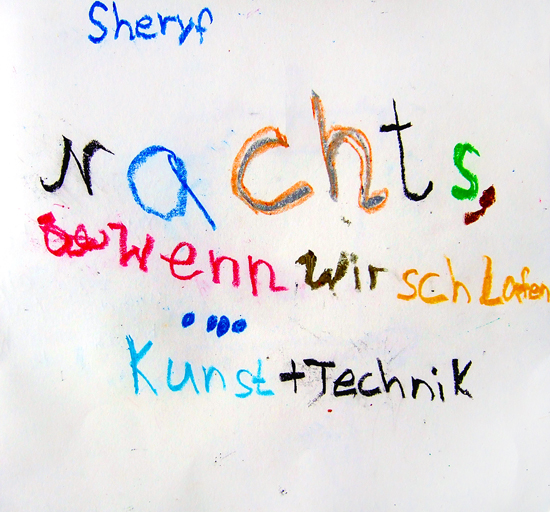 Sheryf
Nachts,
wenn wir schlafen
....
Kunst+Technik